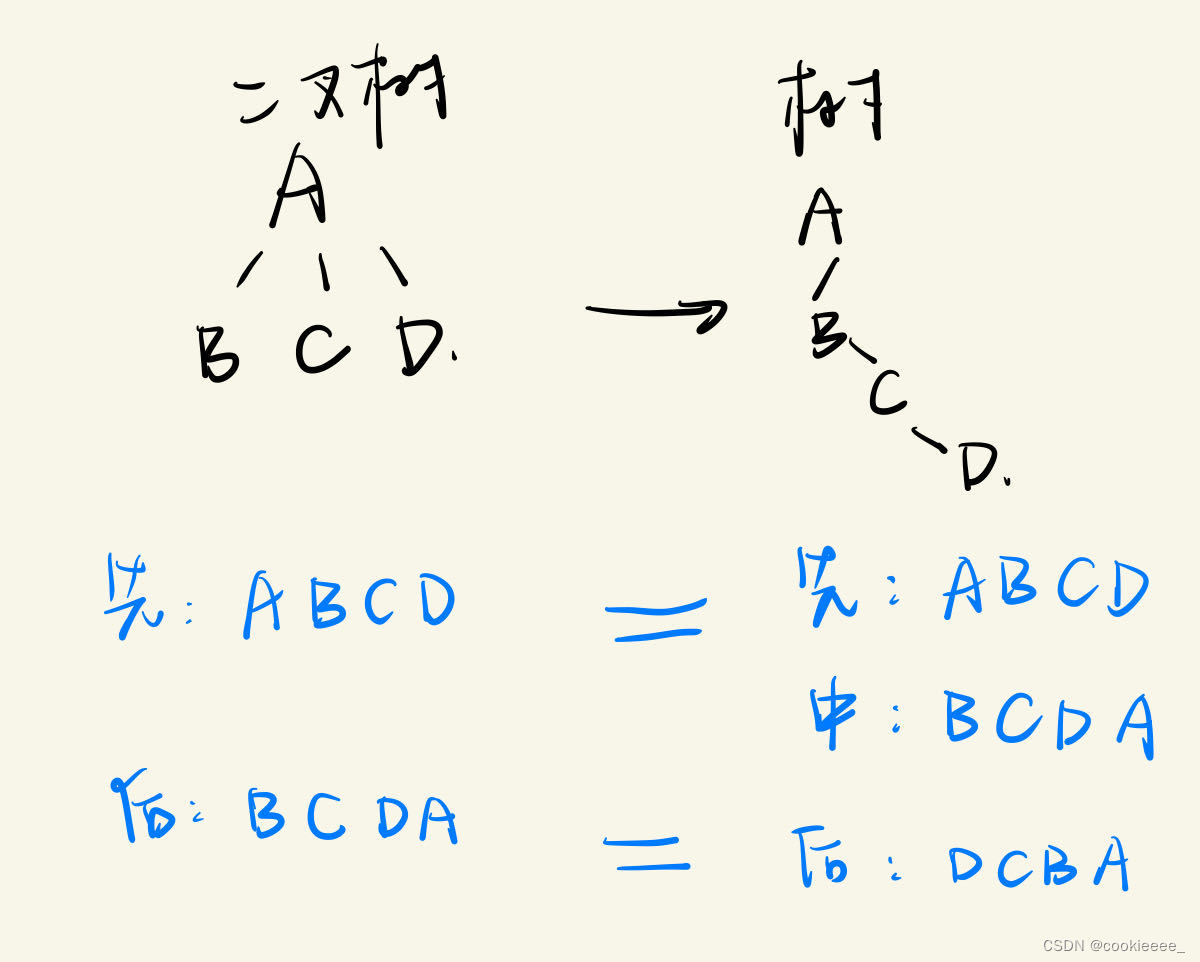 二叉树
树
A
A
B C D.
B
C
D.
先: ABCD = 先: ABCD
中: BCDA
后: BCDA = 后: DCBA
CSDN @cookieeee_